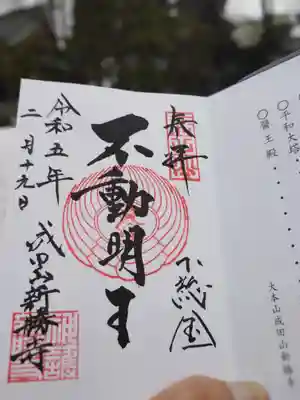 〇平和大塔・・・・
〇醫王殿・・・・
大本山成田山新勝寺
奉拝
下総国
不動明王
令和五年
二月十九日
成田山新勝寺